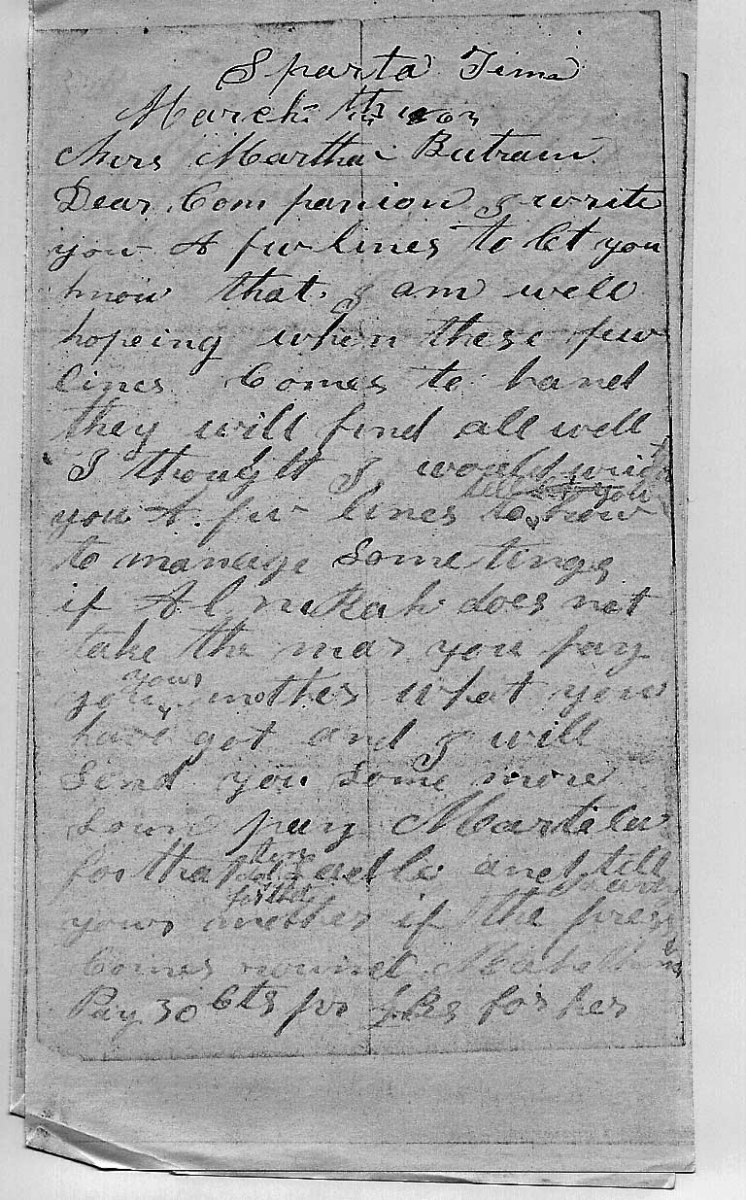 Sparta Tenn
March th
Mrs Martha Butram
Dear Companion I write
you A fiw lines to let you
know that I am well
hopeing when these few
lines Comes to hand
they will find all well
I thought I would
you A. fiw lines to tell you how
to manage some tings
if Al does not
take the you pay
your mother what you
have got and I will
send you some more
soun pay
for that and tell
yours mother if the
Comes round
Pay 30 Cts for her